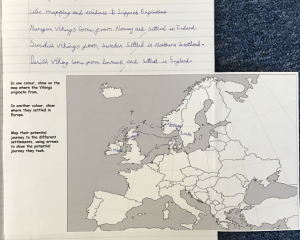 Use mapping and evidence to support Explanations
Vikings come from Norway and settled in Ireland
Swedish Vikings from Sweden Settled in Northern Scotland.
Danish Viking come from Denmark and settled in England
In one colour, show on the map where the Vikings originate from.
In another colour, show where they settled in Europe.
Map their potential journey to the different settlements, using arrows to show the potential journey they took.